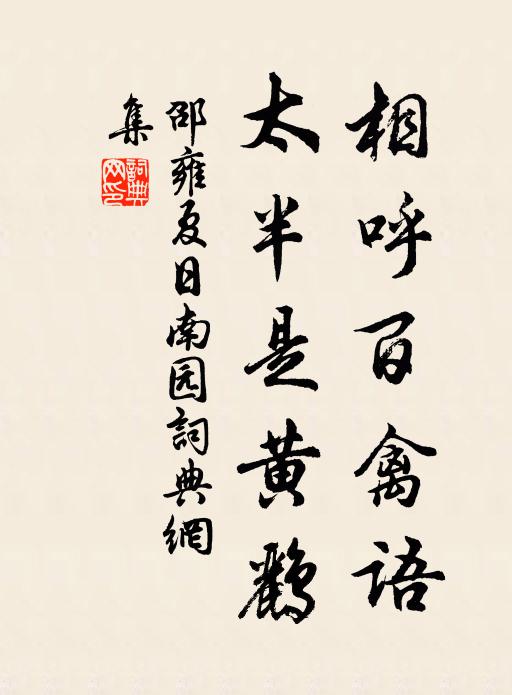 相呼百禽語
太半是黄鸝
邵雍夏日南园詞典網
集
詞典網印